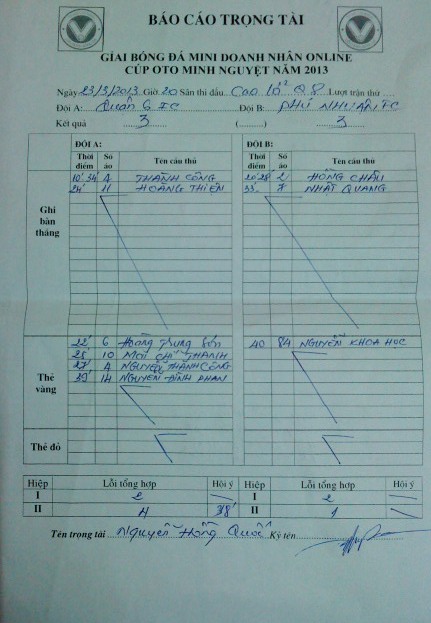 BÁO CÁO TRỌNG TÀI
GIẢI BÓNG ĐÁ MINI DOANH NHÂN ONLINE
CÚP OTO MINH NGUYỆT NĂM 2013
Ngày 23/3/2013 Giờ 20 Sân thi đấu Cao Lỗ Q8 Lượt trận thứ
Đội A: Quận 6 FC Đội B: PHÚ NHUẬN FC
Kết quả 3 (..........) 3
ĐỘI A: ĐỘI B:
Thời điểm Số áo Tên cầu thủ Thời điểm Số áo Tên cầu thủ
Ghi bàn thắng
10' 34' 4 THÀNH CÔNG 20' 28' 2 HỒNG CHÂU
24' 11 HOÀNG THIÊN 33' 7 NHẤT QUANG
Thẻ vàng
22' 6 Hoàng Trung Sơn 40 84 NGUYỄN KHOA HỌC
28' 10 MAI CHÍ THANH
27' 4 NGUYỄN THÀNH CÔNG
39' 14 NGUYỄN ĐÌNH PHAN
Thẻ đỏ
Hiệp Lỗi tổng hợp Hội ý Hiệp Lỗi tổng hợp Hội ý
I 2 I 2
II 4 38' II 1
Tên trọng tài Nguyễn Hồng Quốc Ký tên